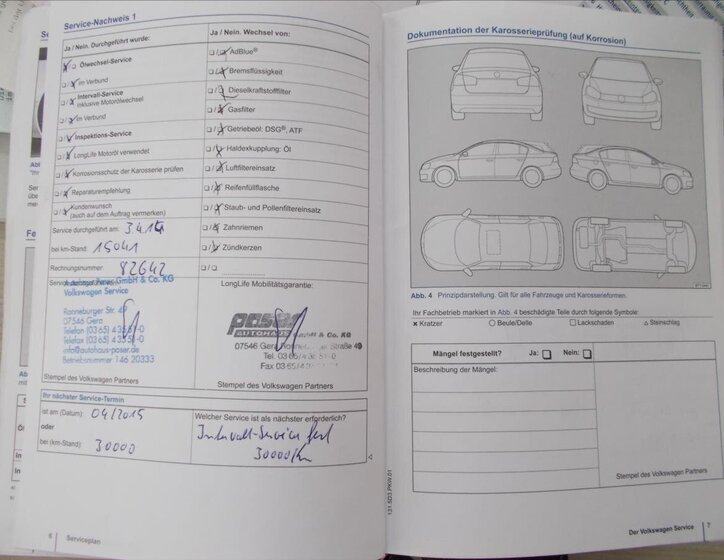 Service-Nachweis 1
Ja / Nein. Durchgeführt wurde:
Ölwechsel-Service
im Verbund
Intervall-Service
inklusive Motorölwechsel
im Verbund
Inspektions-Service
LongLife Motoröl verwendet
Korrosionsschutz der Karosserie prüfen
Reparaturempfehlung
Kundenwunsch
(auch auf dem Auftrag vermerken)
Service durchgeführt am: 3.4.14
bei km-Stand: 15041
Rechnungsnummer 82642
GmbH & Co. KG
Volkswagen Service
Ronneburger Str.
07546 Gera
Telefon (03 65)
Telefax (03 65)
info@autohaus-poser.de
Betriebsnummer 146 20333
Stempel des Volkswagen Partners
Ja / Nein. Wechsel von:
AdBlue®
Bremsflüssigkeit
Dieselkraftstofffilter
Gasfilter
Getriebeöl: DSG®, ATF
Haldexkupplung: Öl
Luftfiltereinsatz
Reifenfüllflasche
Staub- und Pollenfiltereinsatz
Zahnriemen
Zündkerzen
LongLife Mobilitätsgarantie:
poser
AUTOHAUS & Co. KG
07546 Gera Straße 49
Tel. 03 65/
Fax 03 65/
Stempel des Volkswagen Partners
Ihr nächster Service-Termin
ist am (Datum): 04/2015
oder
bei (km-Stand): 30000
Welcher Service ist als nächster erforderlich?
Intervall-Service
30000 km
6 Serviceplan
Dokumentation der Karosserieprüfung (auf Korrosion)
Abb. 4 Prinzipdarstellung. Gilt für alle Fahrzeuge und Karosserieformen.
Ihr Fachbetrieb markiert in Abb. 4 beschädigte Teile durch folgende Symbole:
× Kratzer ○ Beule/Delle □ Lackschaden △ Steinschlag
Mängel festgestellt? Ja: Nein:
Beschreibung der Mängel:
Stempel des Volkswagen Partners
131.5D3.PKW.01
Der Volkswagen Service 7